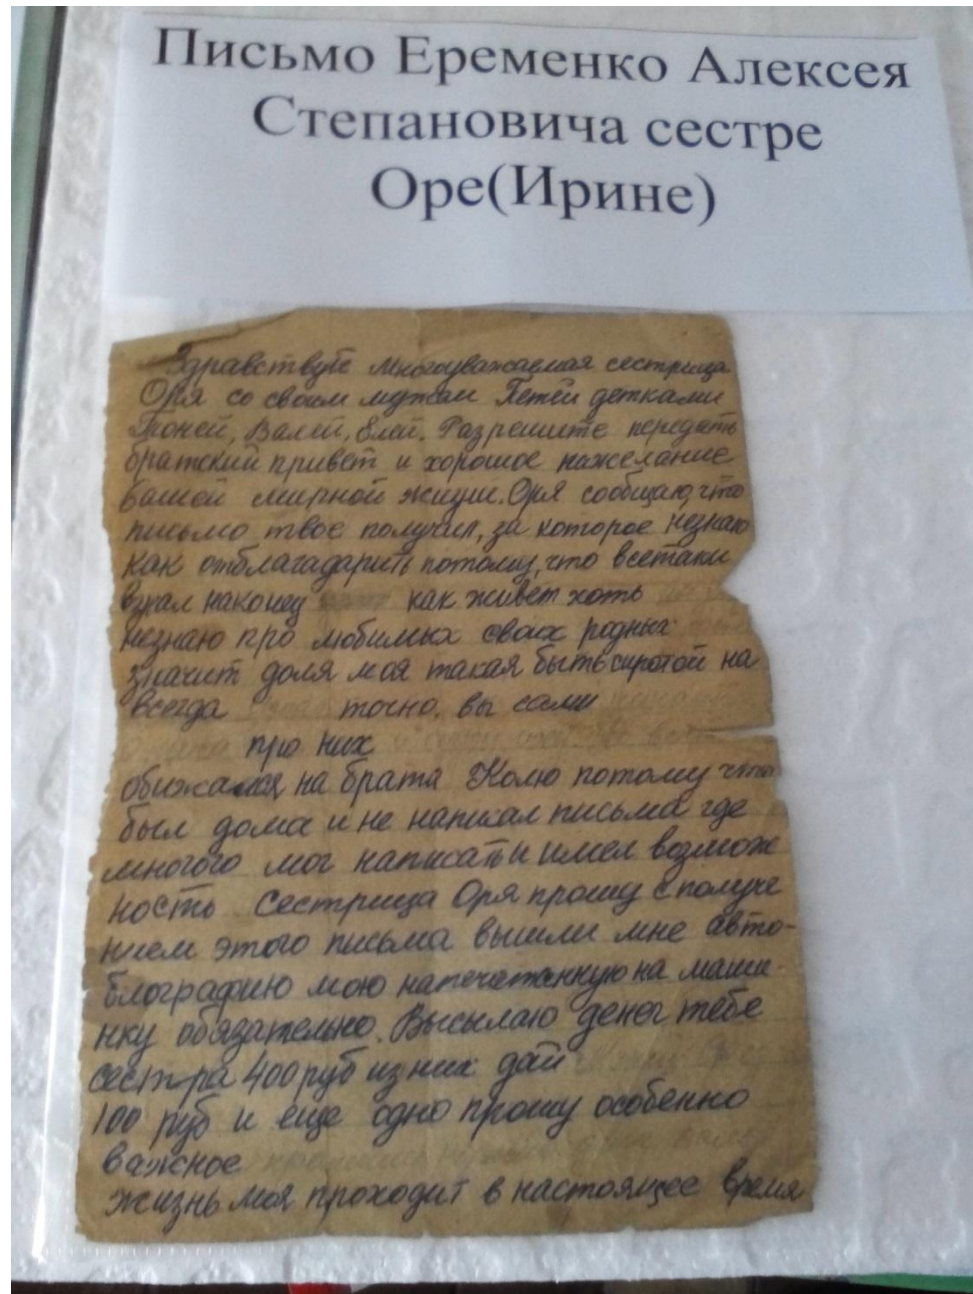 Письмо Еременко Алексея
Степановича сестре
Оре(Ирине)
Здравствуй многоуважаемая сестрица
Оря со своим мужем Петей детками
Тоней, Валей, Елей. Разрешите передать
братский привет и хорошое пожелание
вашей мирной жизни. Оря сообщаю, что
письмо твое получил, за которое незнаю
как отблагадарить потому, что всетаки
взнал наконец как живет хоть
незнаю про любимых своих родных
значит доля моя такая быть сиротой на
всегда точно. вы сами
про них
обижался на брата Колю потому что
был дома и не написал письма где
многого мог написать и имел возмож
ность Сестрица Оря прошу с получе
нием этого письма вышли мне авто-
биографию мою напечатанную на маши-
нку обязательно. Высылаю денег тебе
сестра 400 руб из них дай
100 руб и еще одно прошу особенно
важное
жизнь моя проходит в настоящее время